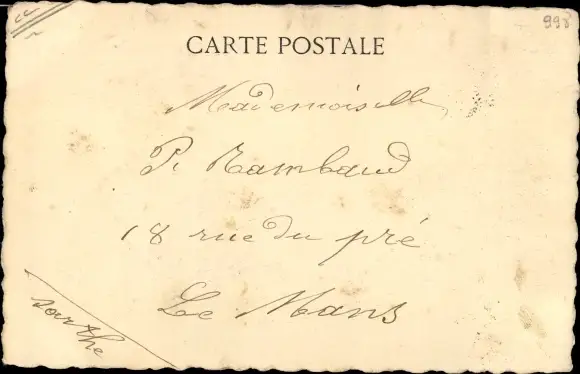 998
CARTE POSTALE
Mademoiselle
P. Rambaud
18 rue du pré
Le Mans
sarthe